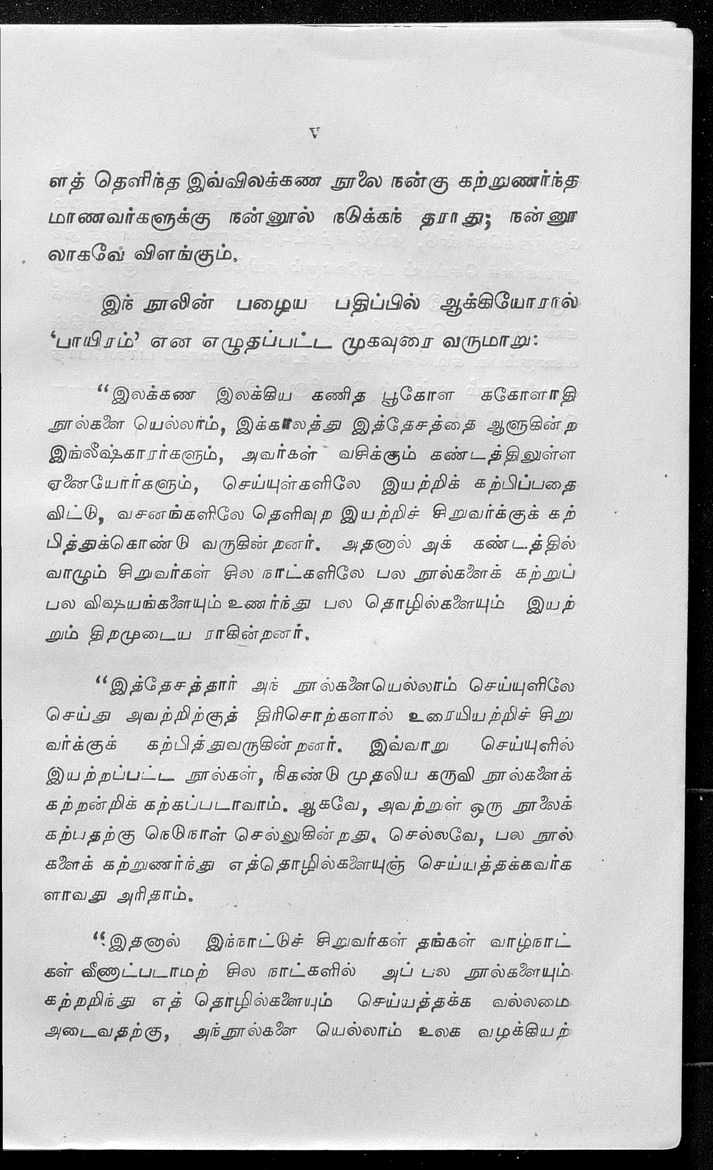 v
ளத் தெளிந்த இவ்விலக்கண நூலை நன்கு கற்றுணர்ந்த
மாணவர்களுக்கு நன்னூல் நடுக்கந் தராது; நன்னூ
லாகவே விளங்கும்.
இந் நூலின் பழைய பதிப்பில் ஆக்கியோரால்
‘பாயிரம்’ என எழுதப்பட்ட முகவுரை வருமாறு:
“இலக்கண இலக்கிய கணித பூகோள ககோளாதி
நூல்களை யெல்லாம், இக்காலத்து இத்தேசத்தை ஆளுகின்ற
இங்லீஷ்காரர்களும், அவர்கள் வசிக்கும் கண்டத்திலுள்ள
ஏனையோர்களும், செய்யுள்களிலே இயற்றிக் கற்பிப்பதை
விட்டு, வசனங்களிலே தெளிவுற இயற்றிச் சிறுவர்க்குக் கற்
பித்துக்கொண்டு வருகின்றனர். அதனால் அக் கண்டத்தில்
வாழும் சிறுவர்கள் சில நாட்களிலே பல நூல்களைக் கற்றுப்
பல விஷயங்களையும் உணர்ந்து பல தொழில்களையும் இயற்
றும் திறமுடைய ராகின்றனர்.
“இத்தேசத்தார் அந் நூல்களையெல்லாம் செய்யுளிலே
செய்து அவற்றிற்குத் திரிசொற்களால் உரையியற்றிச் சிறு
வர்க்குக் கற்பித்துவருகின்றனர். இவ்வாறு செய்யுளில்
இயற்றப்பட்ட நூல்கள், நிகண்டு முதலிய கருவி நூல்களைக்
கற்றன்றிக் கற்கப்படாவாம். ஆகவே, அவற்றுள் ஒரு நூலைக்
கற்பதற்கு நெடுநாள் செல்லுகின்றது. செல்லவே, பல நூல்
களைக் கற்றுணர்ந்து எத்தொழில்களையுஞ் செய்யத்தக்கவர்க
ளாவது அரிதாம்.
“இதனால் இந்நாட்டுச் சிறுவர்கள் தங்கள் வாழ்நாட்
கள் வீணாட்படாமற் சில நாட்களில் அப் பல நூல்களையும்
கற்றறிந்து எத் தொழில்களையும் செய்யத்தக்க வல்லமை
அடைவதற்கு, அந்நூல்களை யெல்லாம் உலக வழக்கியற்